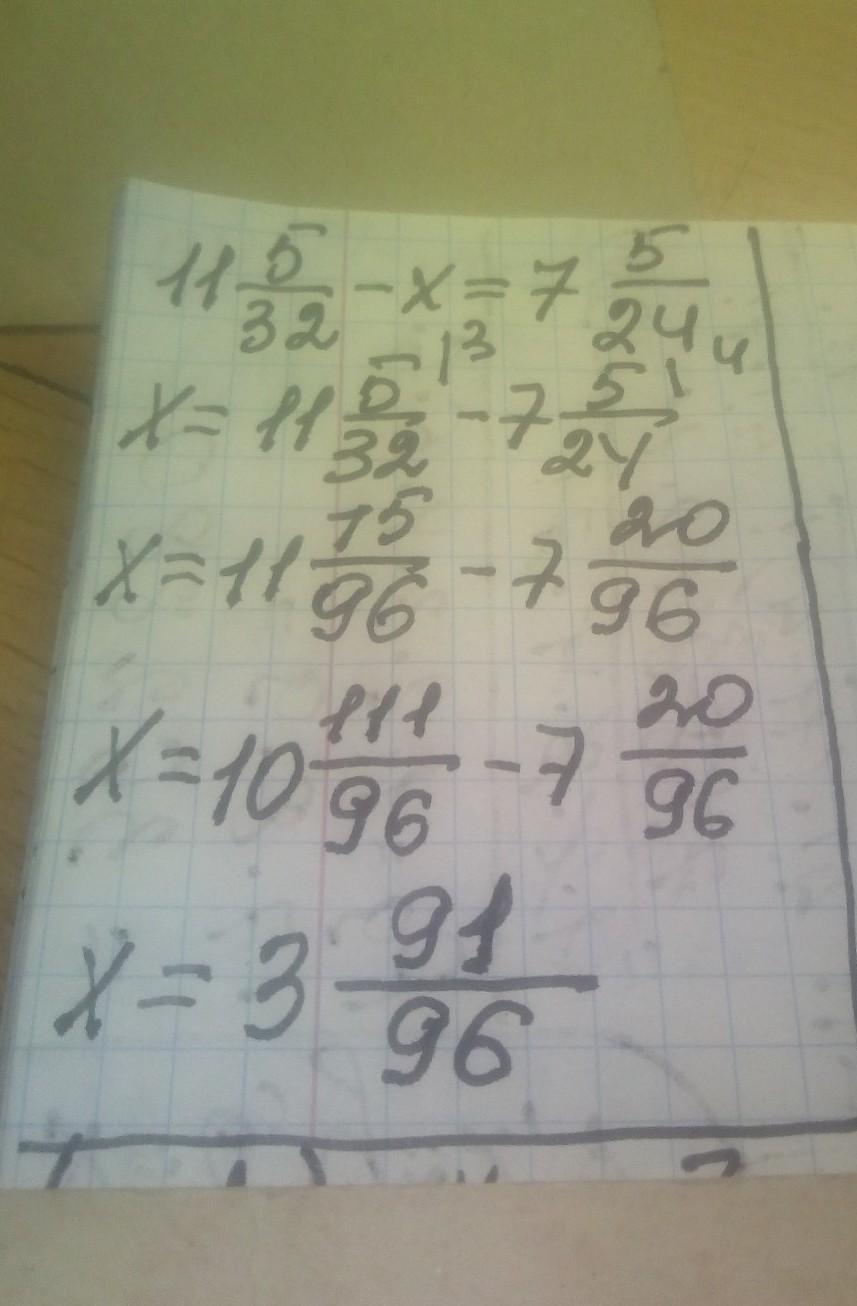 11 5/32 - x = 7 5/24
x = 11 5/32 |3 - 7 5/24 \4
x = 11 15/96 - 7 20/96
x = 10 111/96 - 7 20/96
x = 3 91/96